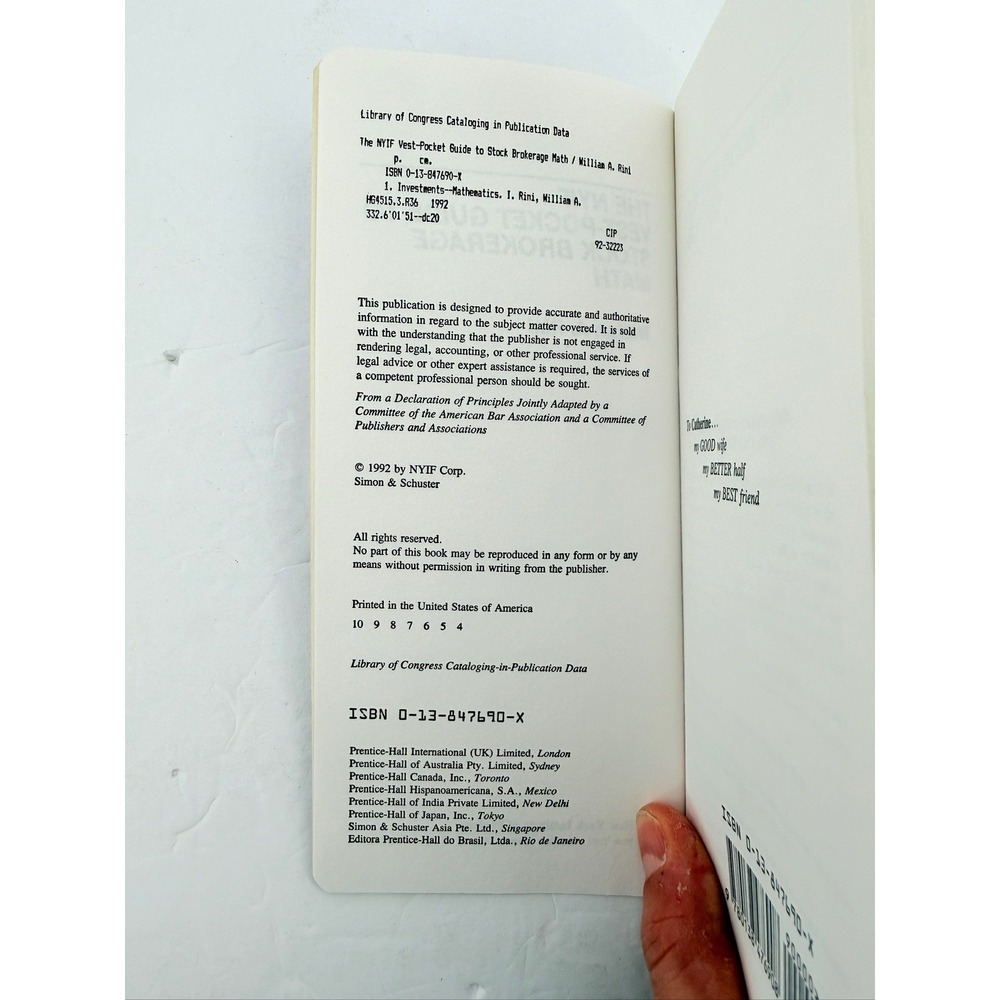 Library of Congress Cataloging in Publication Data
The NYIF Vest-Pocket Guide to Stock Brokerage Math / William A. Rini
p. cm.
ISBN 0-13-847690-X
1. Investments--Mathematics. I. Rini, William A.
HG4515.3.R36 1992
332.6'01'51--dc20
CIP
92-32223
This publication is designed to provide accurate and authoritative
information in regard to the subject matter covered. It is sold
with the understanding that the publisher is not engaged in
rendering legal, accounting, or other professional service. If
legal advice or other expert assistance is required, the services of
a competent professional person should be sought.
From a Declaration of Principles Jointly Adapted by a
Committee of the American Bar Association and a Committee of
Publishers and Associations
© 1992 by NYIF Corp.
Simon & Schuster
All rights reserved.
No part of this book may be reproduced in any form or by any
means without permission in writing from the publisher.
Printed in the United States of America
10 9 8 7 6 5 4
Library of Congress Cataloging-in-Publication Data
ISBN 0-13-847690-X
Prentice-Hall International (UK) Limited, London
Prentice-Hall of Australia Pty. Limited, Sydney
Prentice-Hall Canada, Inc., Toronto
Prentice-Hall Hispanoamericana, S.A., Mexico
Prentice-Hall of India Private Limited, New Delhi
Prentice-Hall of Japan, Inc., Tokyo
Simon & Schuster Asia Pte. Ltd., Singapore
Editora Prentice-Hall do Brasil, Ltda., Rio de Janeiro
To Catherine...
my GOOD wife
my BETTER half
my BEST friend
ISBN 0-13-847690-X